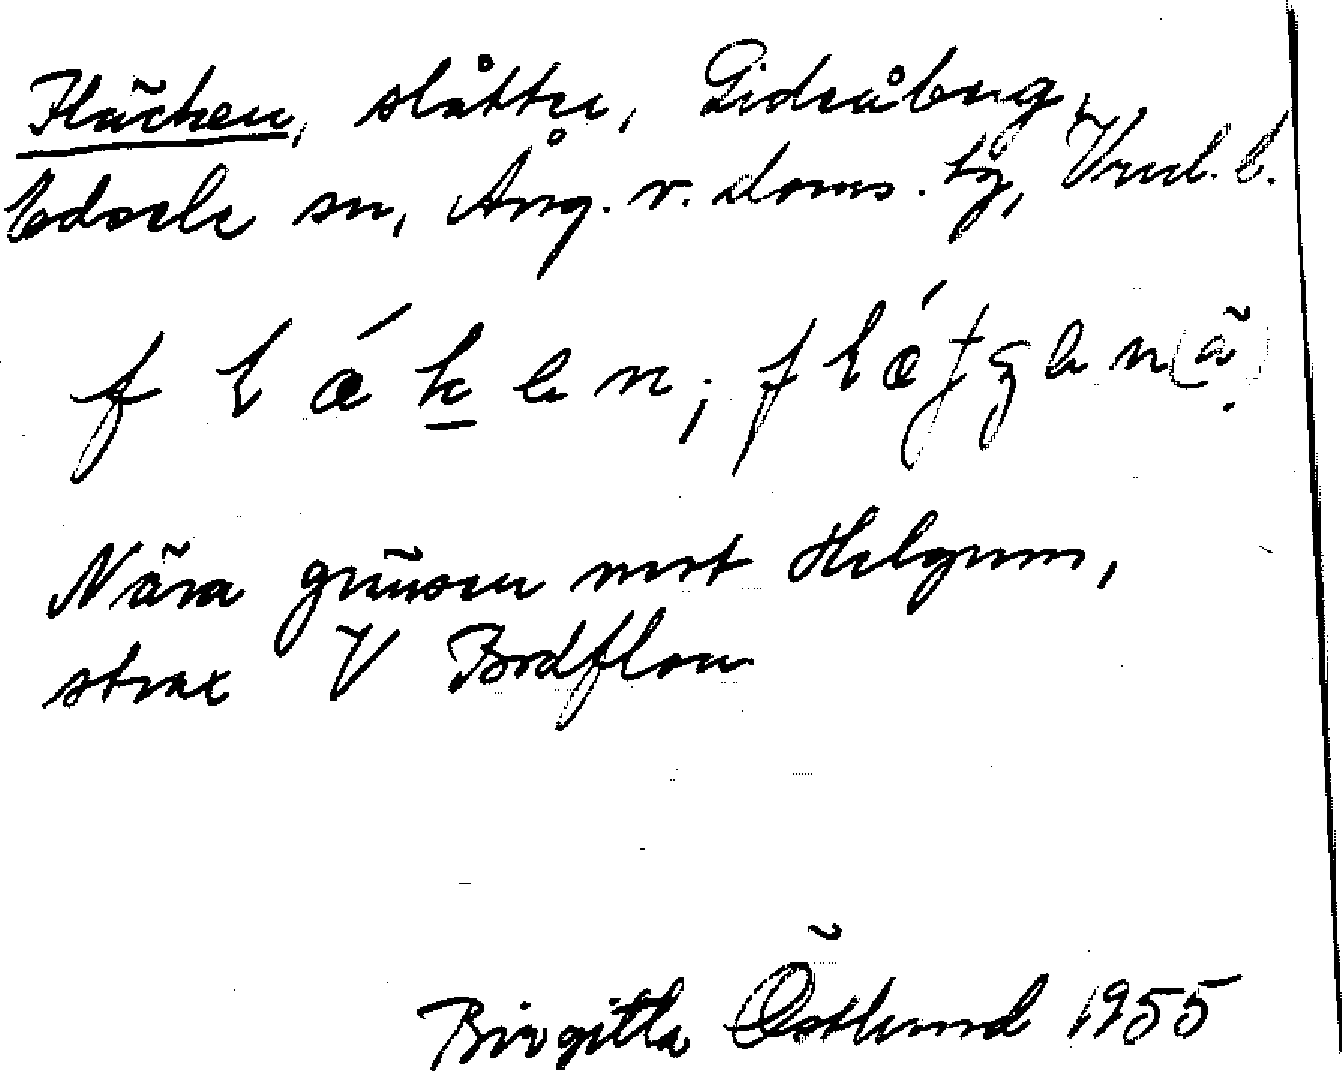 Fläcken, slåtter, Lidtåbug,
Edsele sn, Ång. v. doms. tg, Vnl. b.
f l ǽ k e n; f l ǽ
Nära gränsen mot Helgum,
strax V Bodflon
Birgitta Östlund 1955